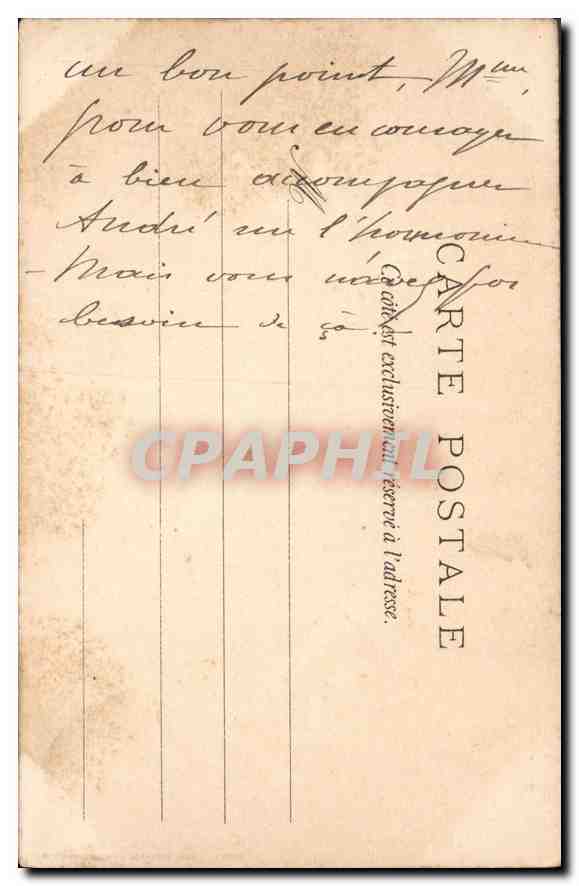 un bon point, Mme,
pour vous encourager
à bien accompagner
André sur l'harmonium
- Mais vous n'avez pas
besoin de ça!
CARTE POSTALE
Ce côté est exclusivement réservé à l'adresse.
CPAPHIL